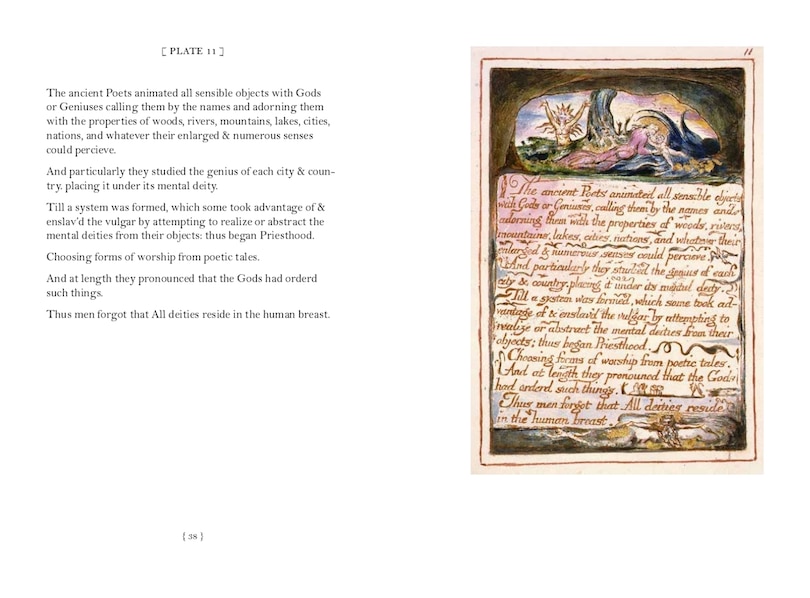 [ PLATE 11 ]
The ancient Poets animated all sensible objects with Gods
or Geniuses calling them by the names and adorning them
with the properties of woods, rivers, mountains, lakes, cities,
nations, and whatever their enlarged & numerous senses
could percieve.
And particularly they studied the genius of each city & coun-
try. placing it under its mental deity.
Till a system was formed, which some took advantage of &
enslav'd the vulgar by attempting to realize or abstract the
mental deities from their objects: thus began Priesthood.
Choosing forms of worship from poetic tales.
And at length they pronounced that the Gods had orderd
such things.
Thus men forgot that All deities reside in the human breast.
{ 38 }
11
The ancient Poets animated all sensible objects
with Gods or Geniuses, calling them by the names and
adorning them with the properties of woods, rivers,
mountains, lakes, cities, nations, and whatever their
enlarged & numerous senses could percieve.
And particularly they studied the genius of each
city & country, placing it under its mental deity.
Till a system was formed, which some took ad-
vantage of & enslav'd the vulgar by attempting to
realize or abstract the mental deities from their
objects; thus began Priesthood.
Choosing forms of worship from poetic tales.
And at length they pronounced that the Gods
had orderd such things.
Thus men forgot that All deities reside
in the human breast.